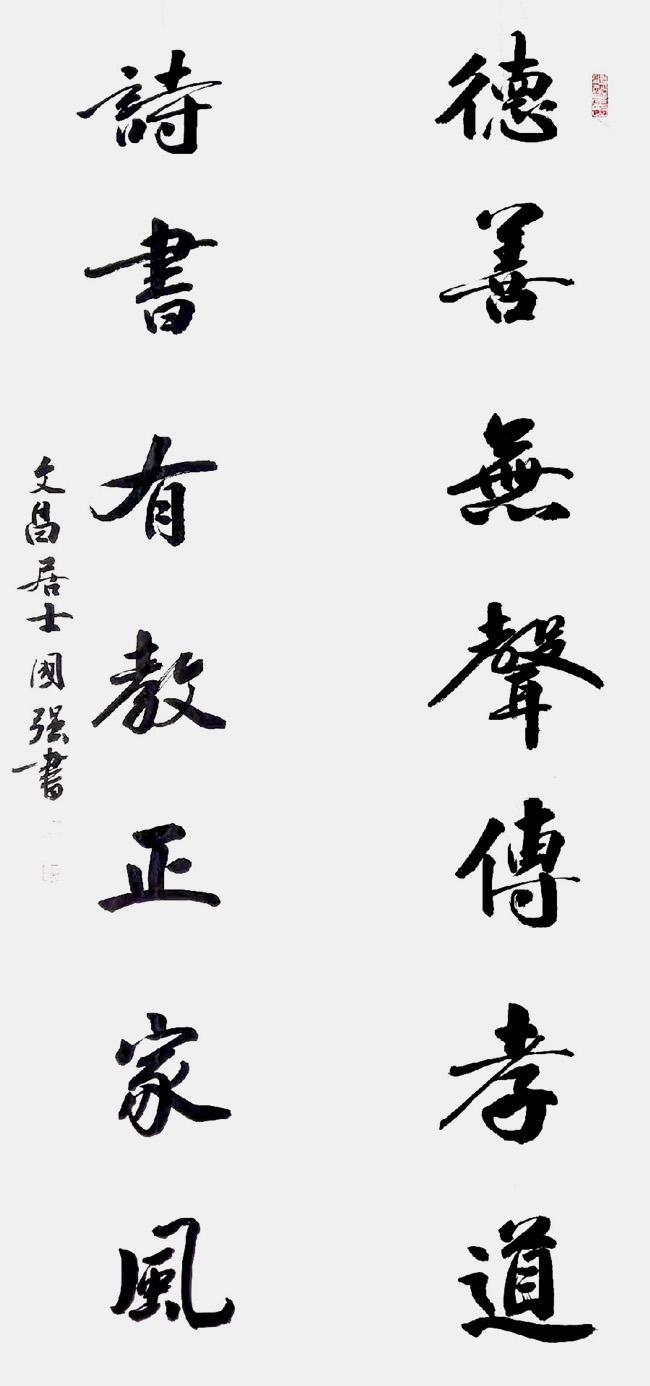 德善無聲傳孝道
詩書有教正家風
文昌居士國强書